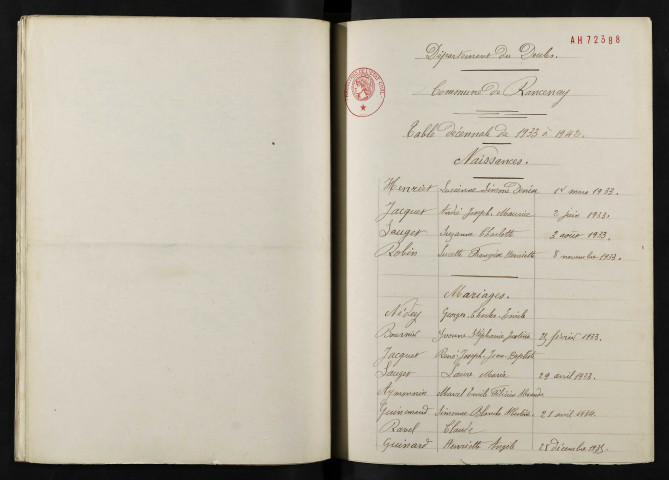 AH 72388
Département du Doubs.
Commune de Rancenay
Table décennale de 1933 à 1942.
Naissances.
Henriet Lucienne Simone Denise 1er mars 1933.
Jacquet André Joseph Maurice 2 juin 1933.
Sauget Suzanne Charlotte 3 août 1933.
Robin Lucette Françoise Henriette 8 novembre 1933.
Mariages.
Nédey Georges Charles Emile
Bournier Yvonne Stéphanie Justine 25 février 1933.
Jacquet René Joseph Jean Baptiste
Sauget Laure Marie 29 avril 1933.
Aymonnin Marcel Emile
Guinemand Simonne Blanche 21 avril 1934.
Ravel Claude
Guinard Henriette Angèle 28 décembre 1935.